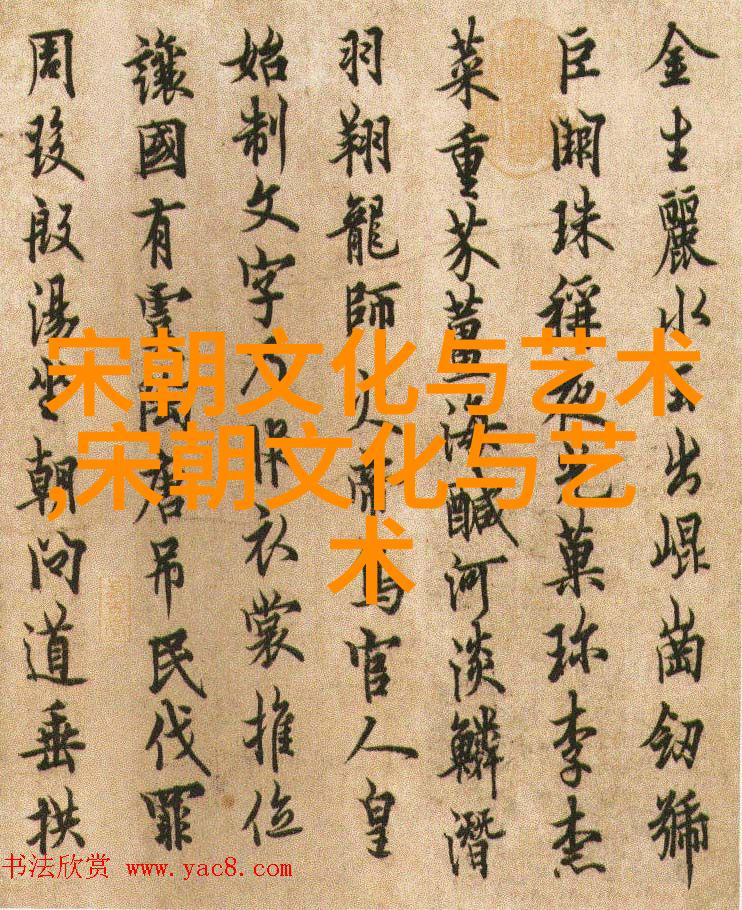 金生麗水玉出崐崗劒號
巨闕珠稱夜光菓珎李柰
菜重芥薑海鹹河淡鱗潛
羽翔龍師火帝鳥官人皇
始制文字乃服衣裳推位
讓國有虞陶唐吊民伐罪
周發殷湯坐朝問道垂拱
宋朝文化与艺术
,宋朝文化与艺
术
书法欣赏 www.yac8.com